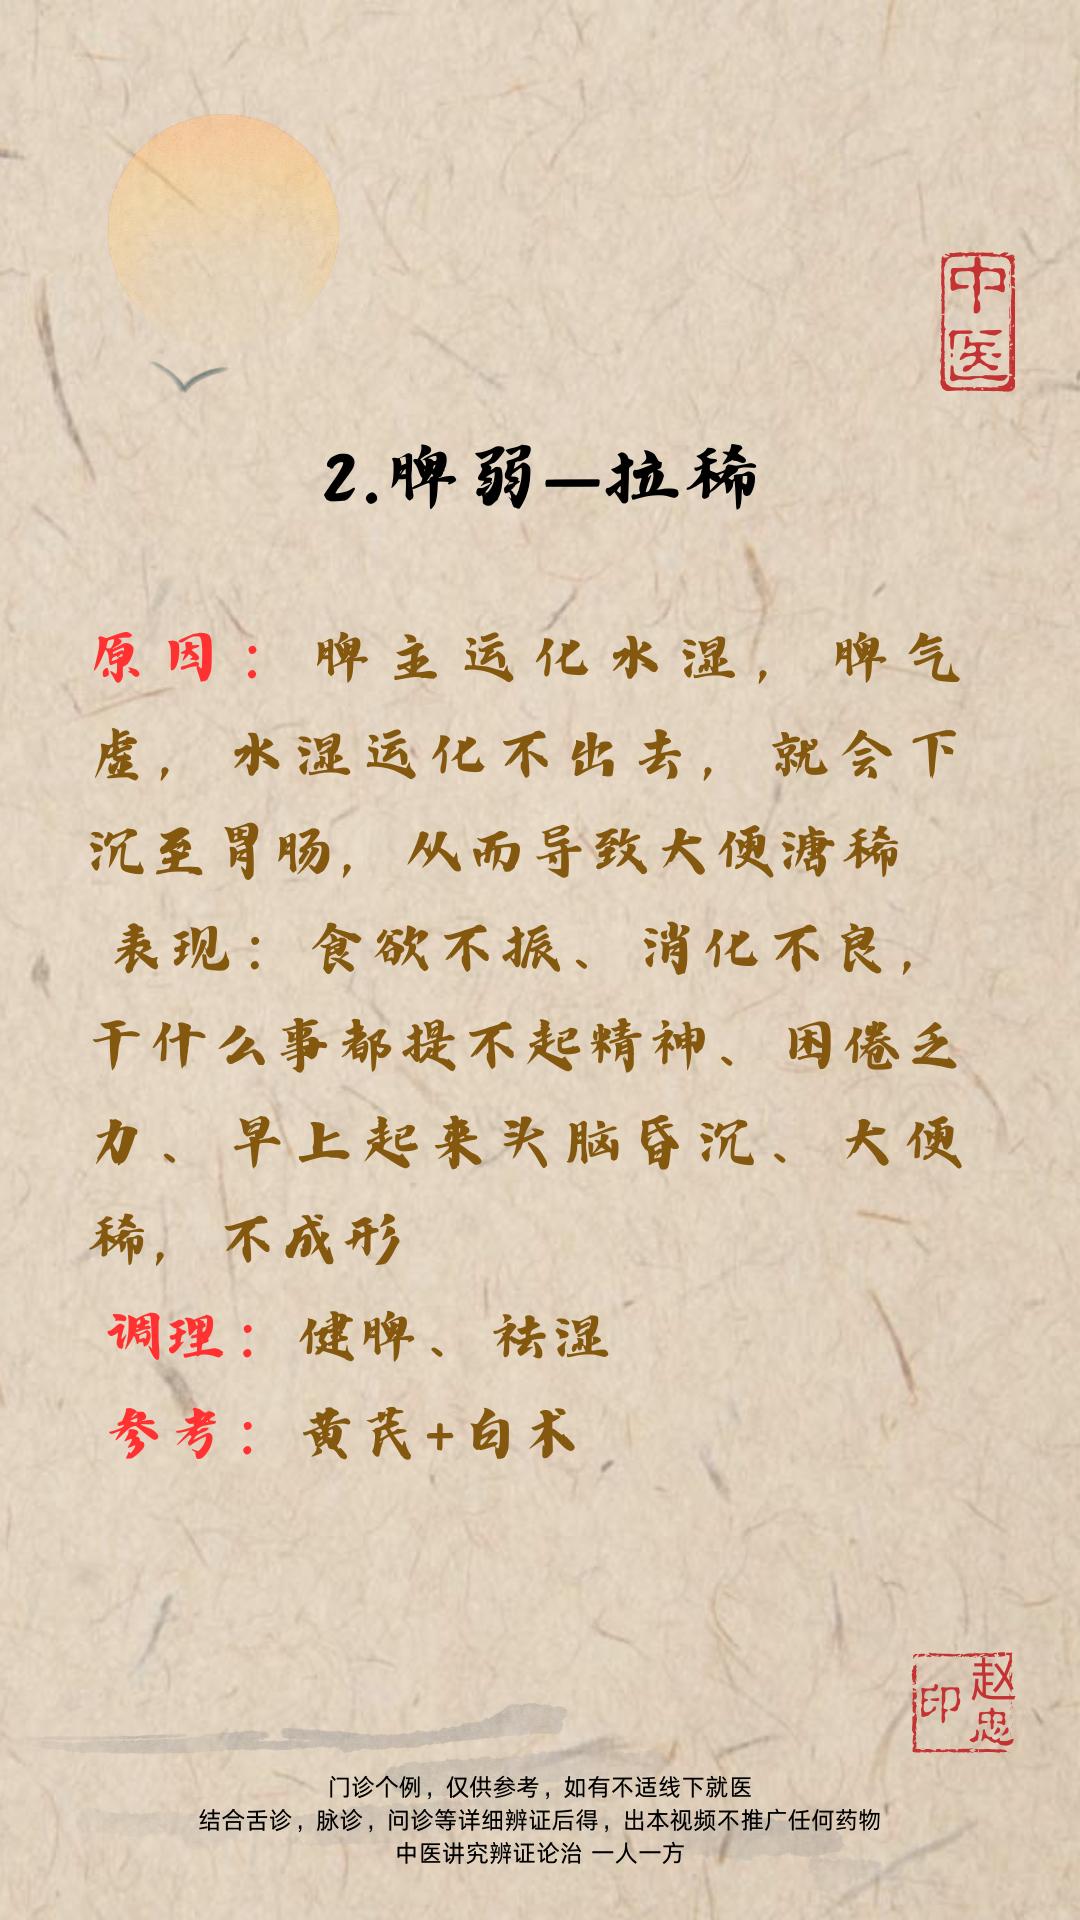 中医
2.脾弱—拉稀
原因：脾主运化水湿，脾气
虚，水湿运化不出去，就会下
沉至胃肠，从而导致大便溏稀
表现：食欲不振、消化不良，
干什么事都提不起精神、困倦乏
力、早上起来头脑昏沉、大便
稀，不成形
调理：健脾、祛湿
参考：黄芪+白术
赵忠印
门诊个例，仅供参考，如有不适线下就医
结合舌诊，脉诊，问诊等详细辨证后得，出本视频不推广任何药物
中医讲究辨证论治 一人一方